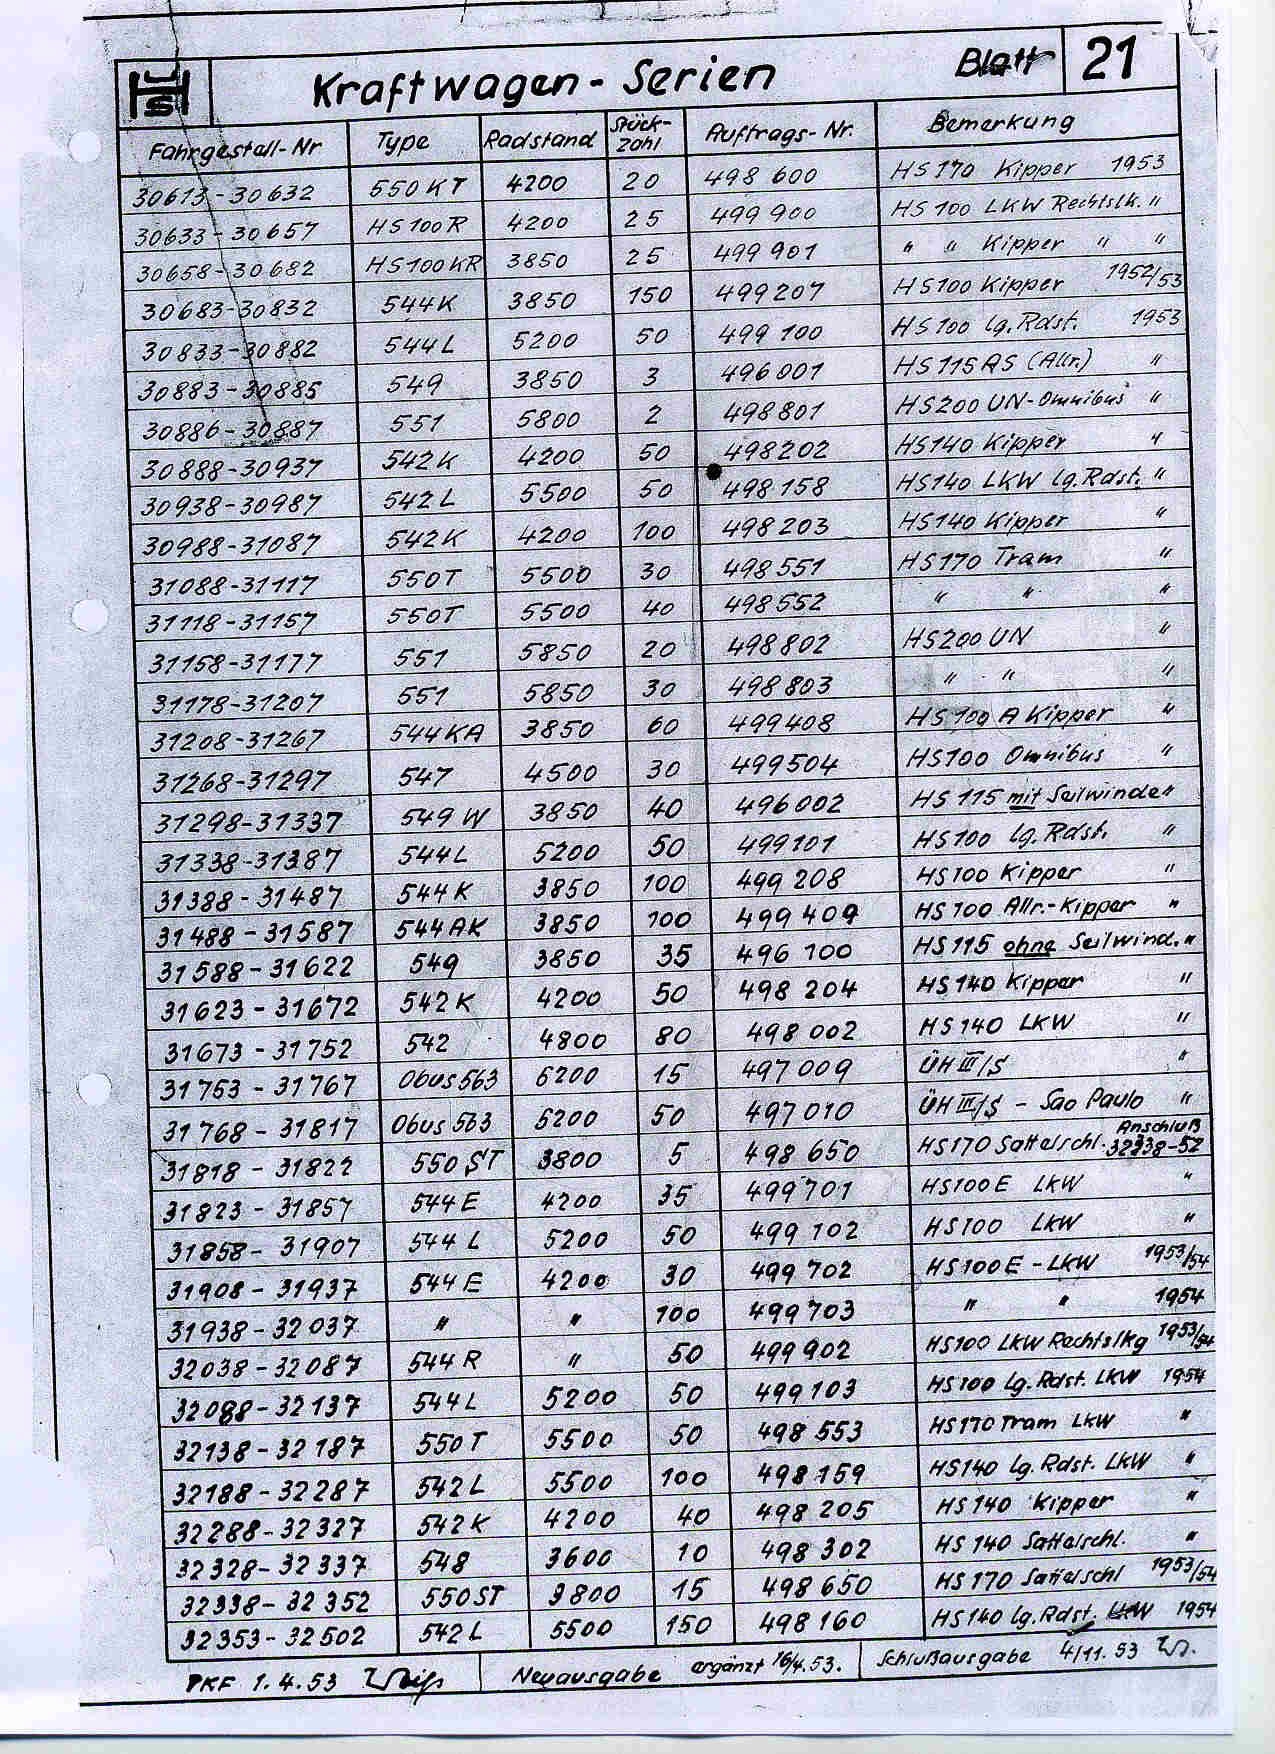 HS
Kraftwagen - Serien Blatt 21
Fahrgestell-Nr Type Radstand Stück-zahl Auftrags-Nr. Bemerkung
30613 - 30632 550 KT 4200 20 498 600 HS 170 Kipper 1953
30633 - 30657 HS 100 R 4200 25 499 900 HS 100 LKW Rechtslk. "
30658 - 30682 HS 100 KR 3850 25 499 901 " " Kipper " "
30683-30832 544K 3850 150 499207 HS100 Kipper 1952/53
30833-30882 544L 5200 50 499 100 HS 100 lg. Rdst. 1953
30883-30885 549 3850 3 496001 HS 115 AS (Allr.) "
30886-30887 551 5800 2 498801 HS200 UN-Omnibus "
30888-30937 542K 4200 50 498202 HS140 Kipper "
30938-30987 542L 5500 50 498158 HS140 LKW lg. Rdst. "
30988-31087 542K 4200 100 498203 HS140 Kipper "
31088-31117 550T 5500 30 498551 HS170 Tram "
31118-31157 550T 5500 40 498552 " " "
31158-31177 551 5850 20 498802 HS200 UN "
31178-31207 551 5850 30 498803 " " "
31208-31267 544KA 3850 60 499408 HS 100 A Kipper "
31268-31297 547 4500 30 499504 HS100 Omnibus "
31298-31337 549 W 3850 40 496002 HS 115 mit Seilwinde "
31338-31387 544L 5200 50 499101 HS100 lg. Rdst. "
31388-31487 544K 3850 100 499 208 HS 100 Kipper "
31488-31587 544AK 3850 100 499 409 HS 100 Allr.-Kipper "
31588-31622 549 3850 35 496 100 HS 115 ohne Seilwind. "
31623-31672 542K 4200 50 498 204 HS 140 Kipper "
31673 - 31752 542 4800 80 498 002 HS 140 LKW "
31753 - 31767 Obus 563 6200 15 497 009 ÜH III/S "
31768 - 31817 Obus 563 6200 50 497 010 ÜH III/S - Sao Paulo "
31818 - 31822 550 ST 3800 5 498 650 HS170 Sattelschl. Anschluß 32338-52
31823 - 31857 544 E 4200 35 499701 HS100E LKW "
31858 - 31907 544 L 5200 50 499 102 HS100 LKW "
31908 - 31937 544 E 4200 30 499 702 HS100E - LKW 1953/54
31938 - 32037 " " 100 499703 " " 1954
32038 - 32087 544 R " 50 499902 HS100 LKW Rechtslkg 1953/54
32088-32137 544L 5200 50 499103 HS 100 lg. Rdst. LKW 1954
32138-32187 550T 5500 50 498 553 HS170 Tram LKW "
32188-32287 542L 5500 100 498 159 HS140 lg. Rdst. LKW "
32288-32327 542K 4200 40 498 205 HS 140 Kipper "
32328-32337 548 3600 10 498 302 HS 140 Sattelschl. "
32338-32352 550ST 3800 15 498 650 HS 170 Sattelschl 1953/54
32353-32502 542L 5500 150 498 160 HS140 lg. Rdst. LKW 1954
PKF 1.4.53 Neuausgabe ergänzt 16/4.53. Schlußausgabe 4/11.53